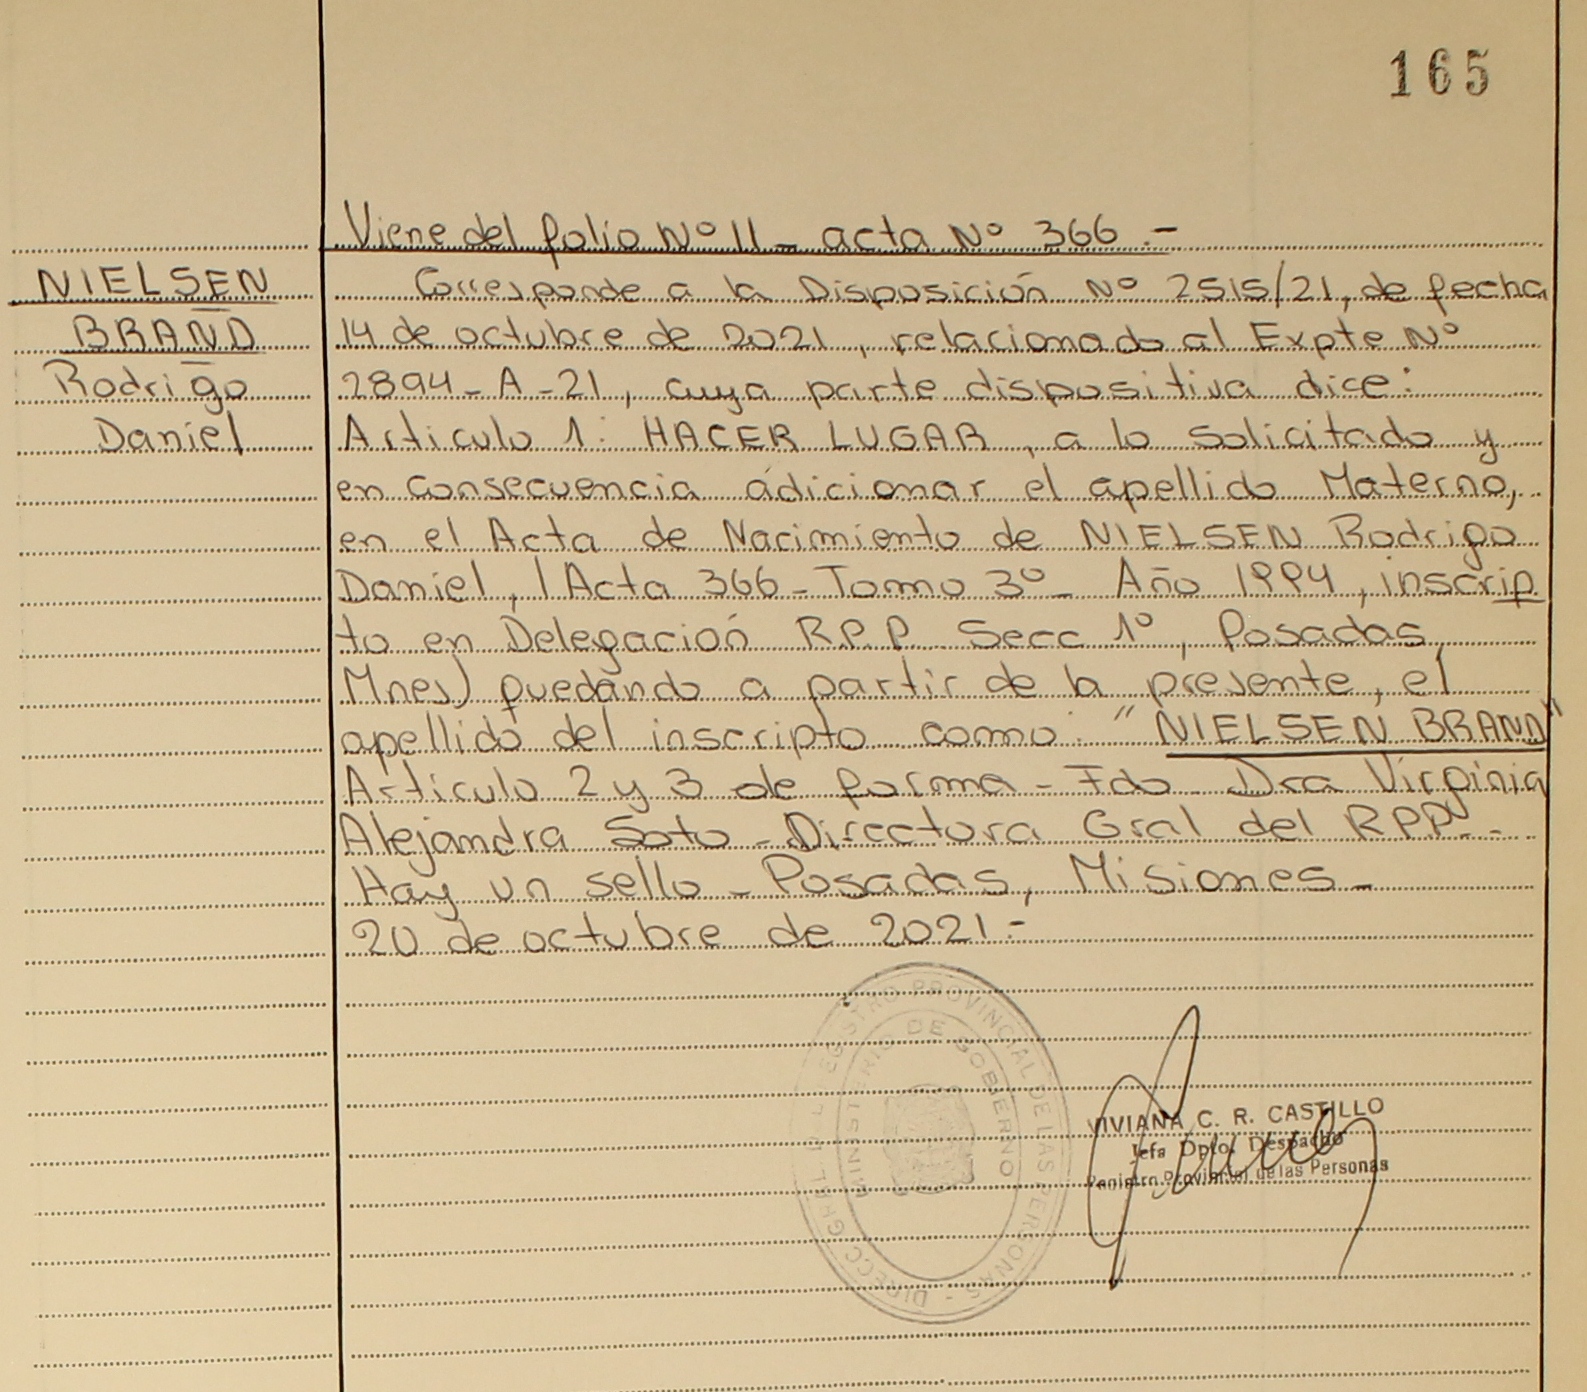 165
Viene del folio Nº 11 - acta Nº 366.-
NIELSEN
BRAND
Rodrigo
Daniel
Corresponde a la Disposición Nº 2515/21, de fecha
14 de octubre de 2021, relacionado al Expte Nº
2894-A-21, cuya parte dispositiva dice:
Articulo 1: HACER LUGAR, a lo solicitado y
en consecuencia adicionar el apellido Materno,
en el Acta de Nacimiento de NIELSEN Rodrigo
Daniel, (Acta 366 - Tomo 3º - Año 1994, inscrip
to en Delegación R.P.P. Secc 1º, Posadas,
Mnes) quedando a partir de la presente, el
apellido del inscripto como: "NIELSEN BRAND"
Articulo 2 y 3 de forma - Fdo - Dra Virginia
Alejandra Soto - Directora Gral del RPP -
Hay un sello - Posadas, Misiones -
20 de octubre de 2021 -
DIRECC GRAL DEL REGISTRO PROVINCIAL DE LAS PERSONAS -
MINISTERIO DE GOBIERNO
VIVIANA C. R. CASTILLO
Jefa Dpto. Despacho
Registro Provincial de las Personas